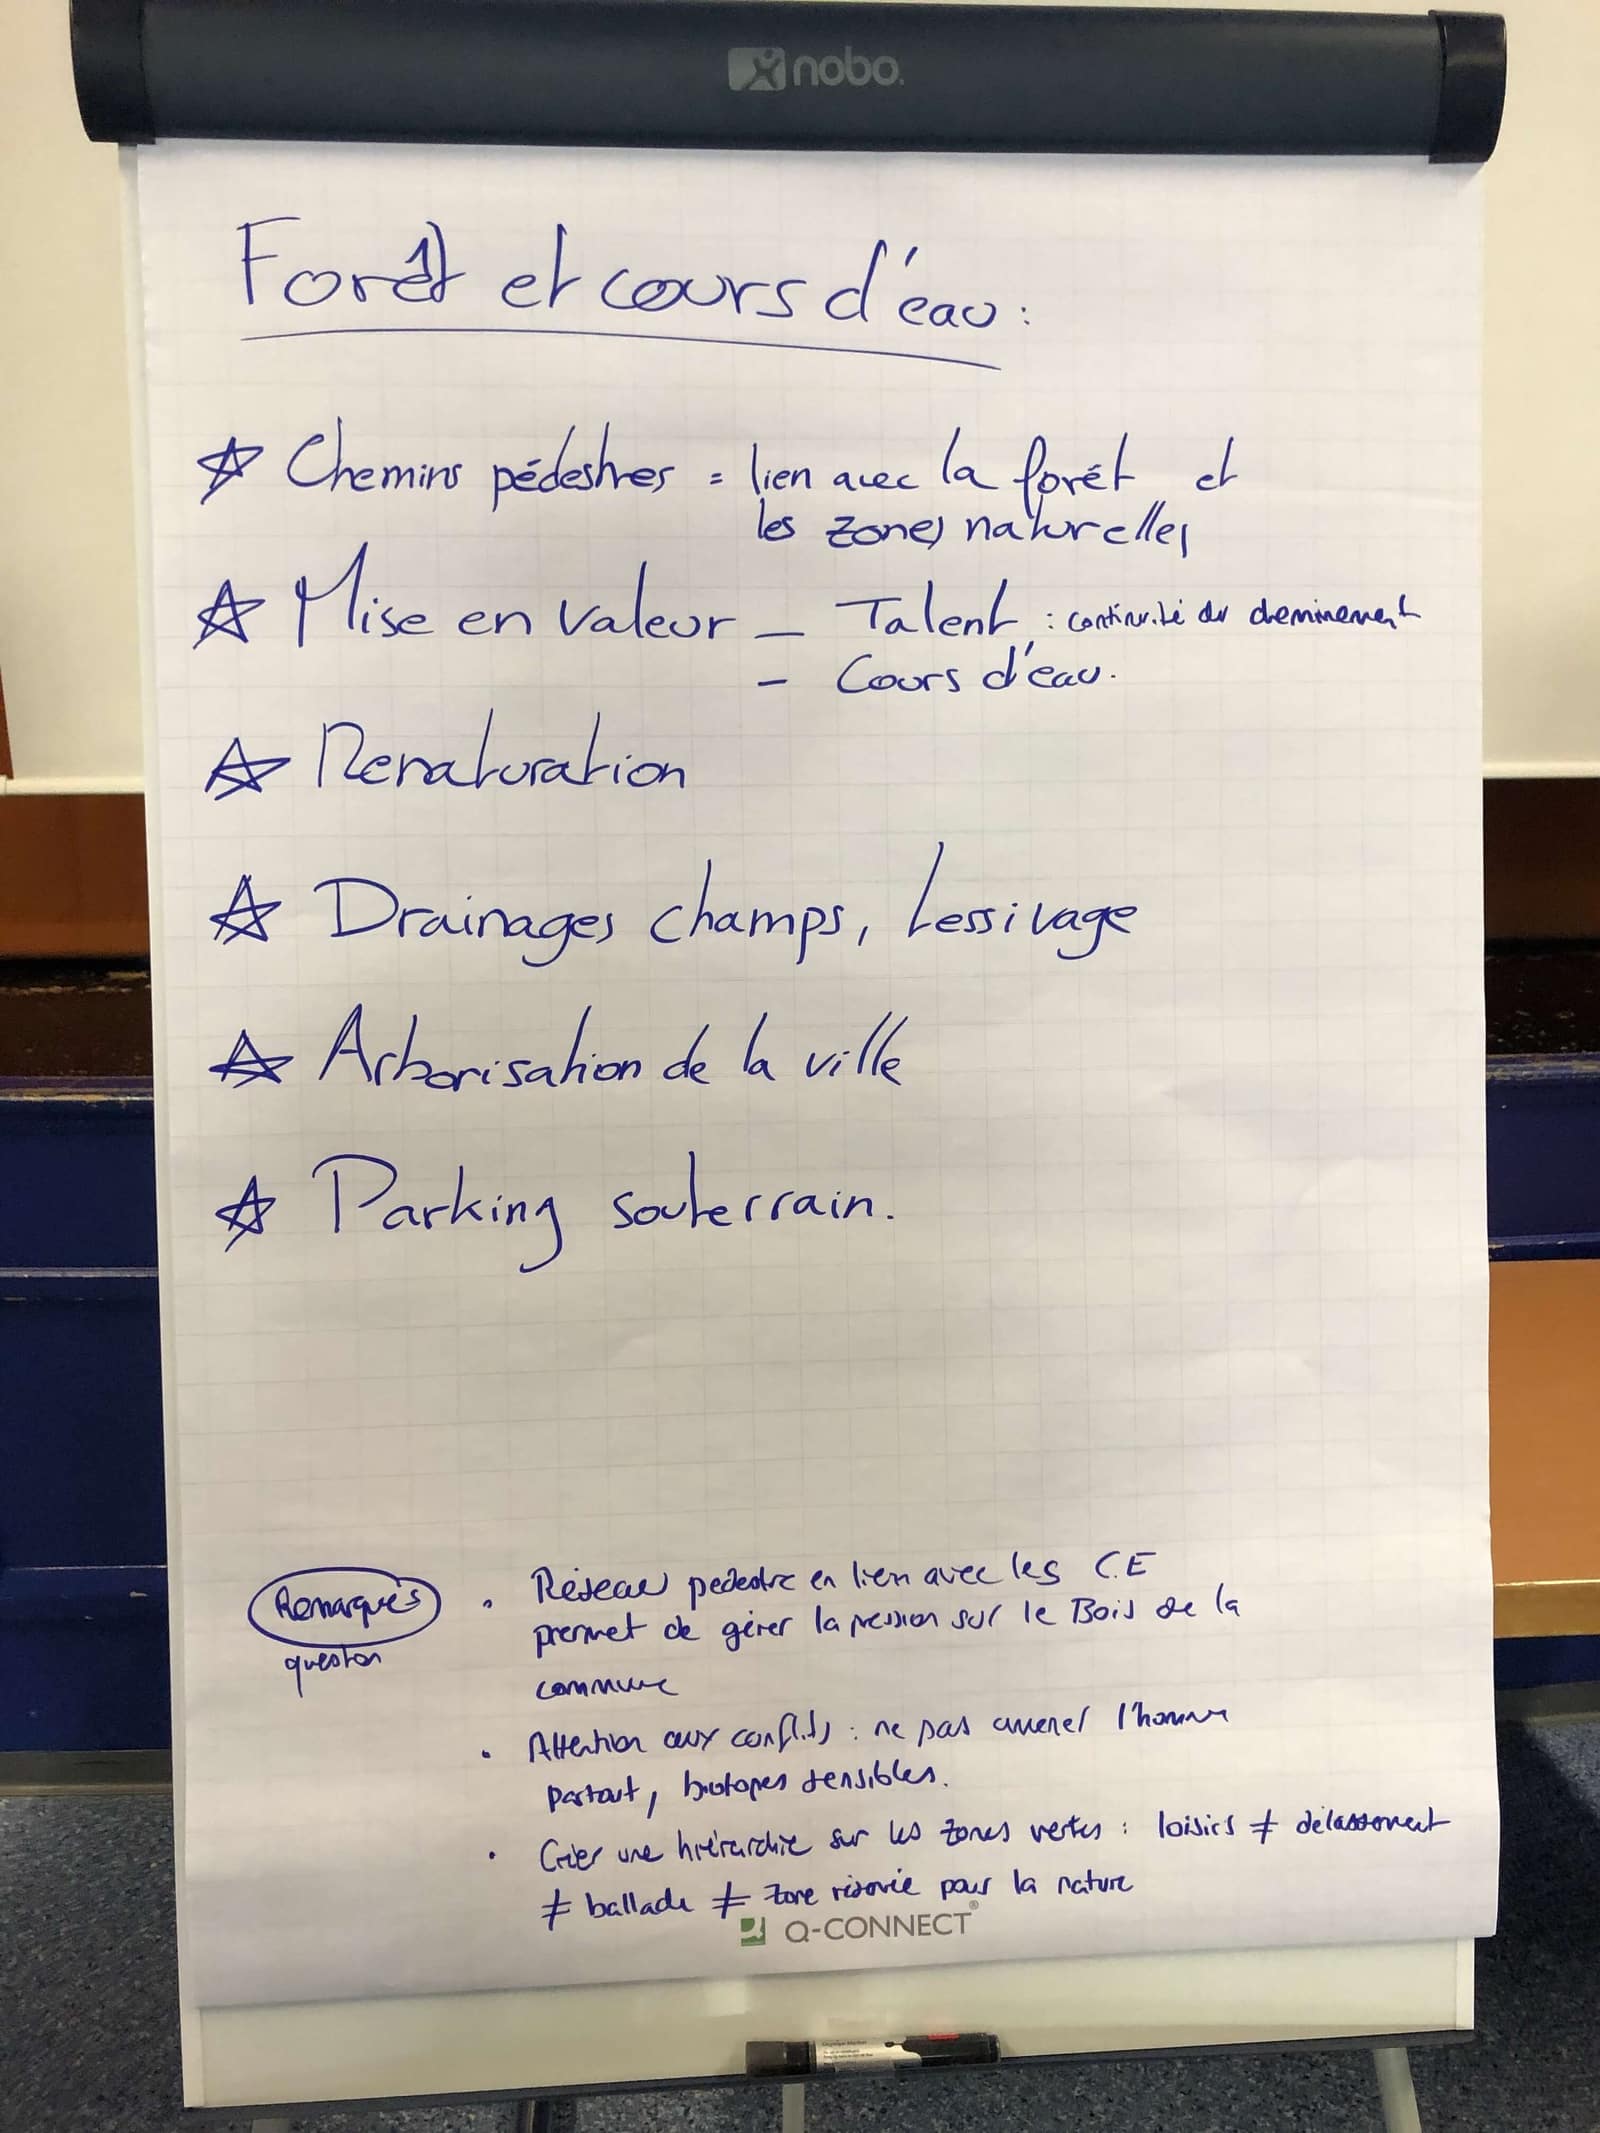 nobo
Forêt et cours d'eau :
☆ Chemins pédestres = lien avec la forêt et
les zones naturelles
☆ Mise en valeur - Talent : continuité du cheminement
- Cours d'eau.
☆ Renaturation
☆ Drainages champs, lessivage
☆ Arborisation de la ville
☆ Parking souterrain.
Remarques
question
• Réseau pédestre en lien avec les C.E
permet de gérer la pression sur le Bois de la
commune
• Attention aux conflits : ne pas amener l'homme
partout, biotopes sensibles.
• Créer une hiérarchie sur les zones vertes : loisirs ≠ délassement
≠ ballade ≠ zone réservée pour la nature
Q-CONNECT®